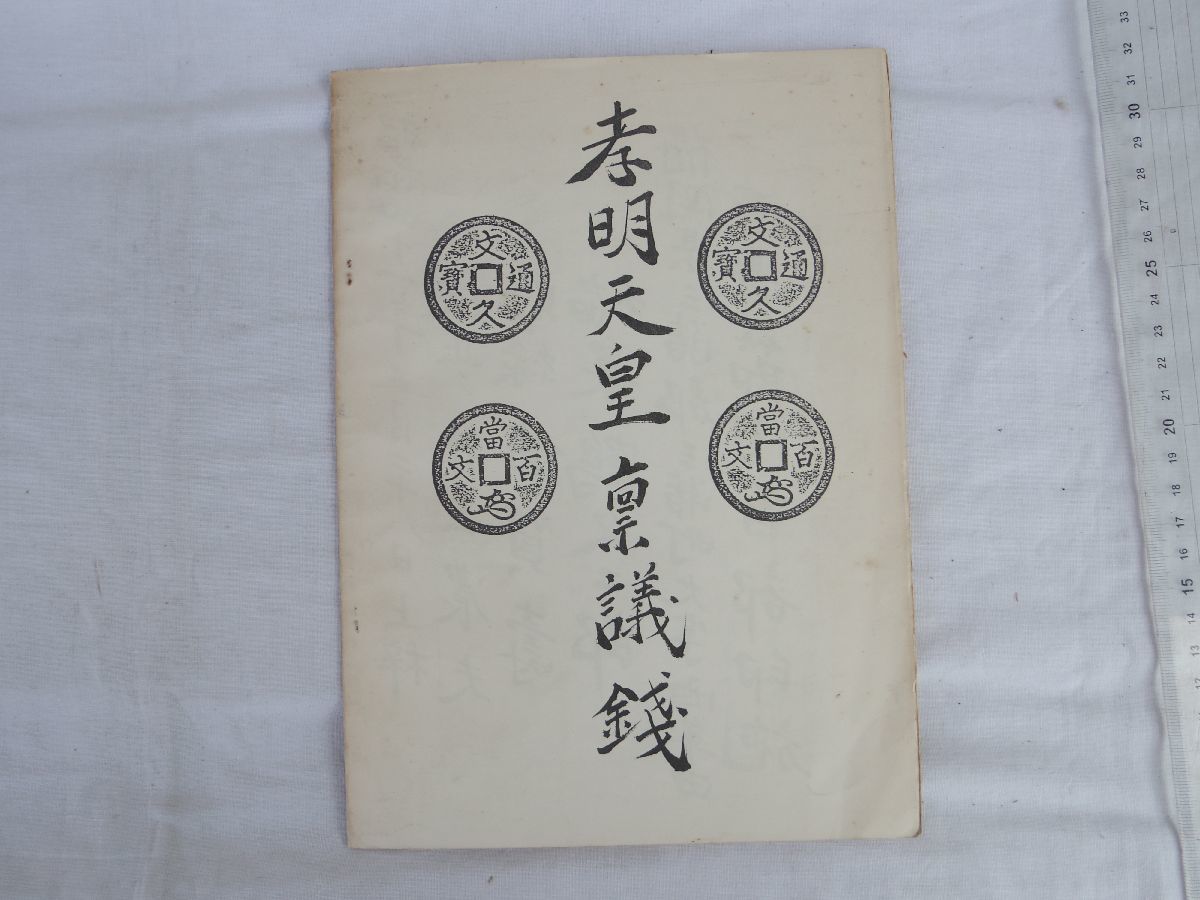 孝明天皇稟議錢
文久通寳
文久通寳
當百文
當百文
33
32
31
30
29
28
27
26
25
24
23
22
21
20
19
18
17
16
15
14
13
12